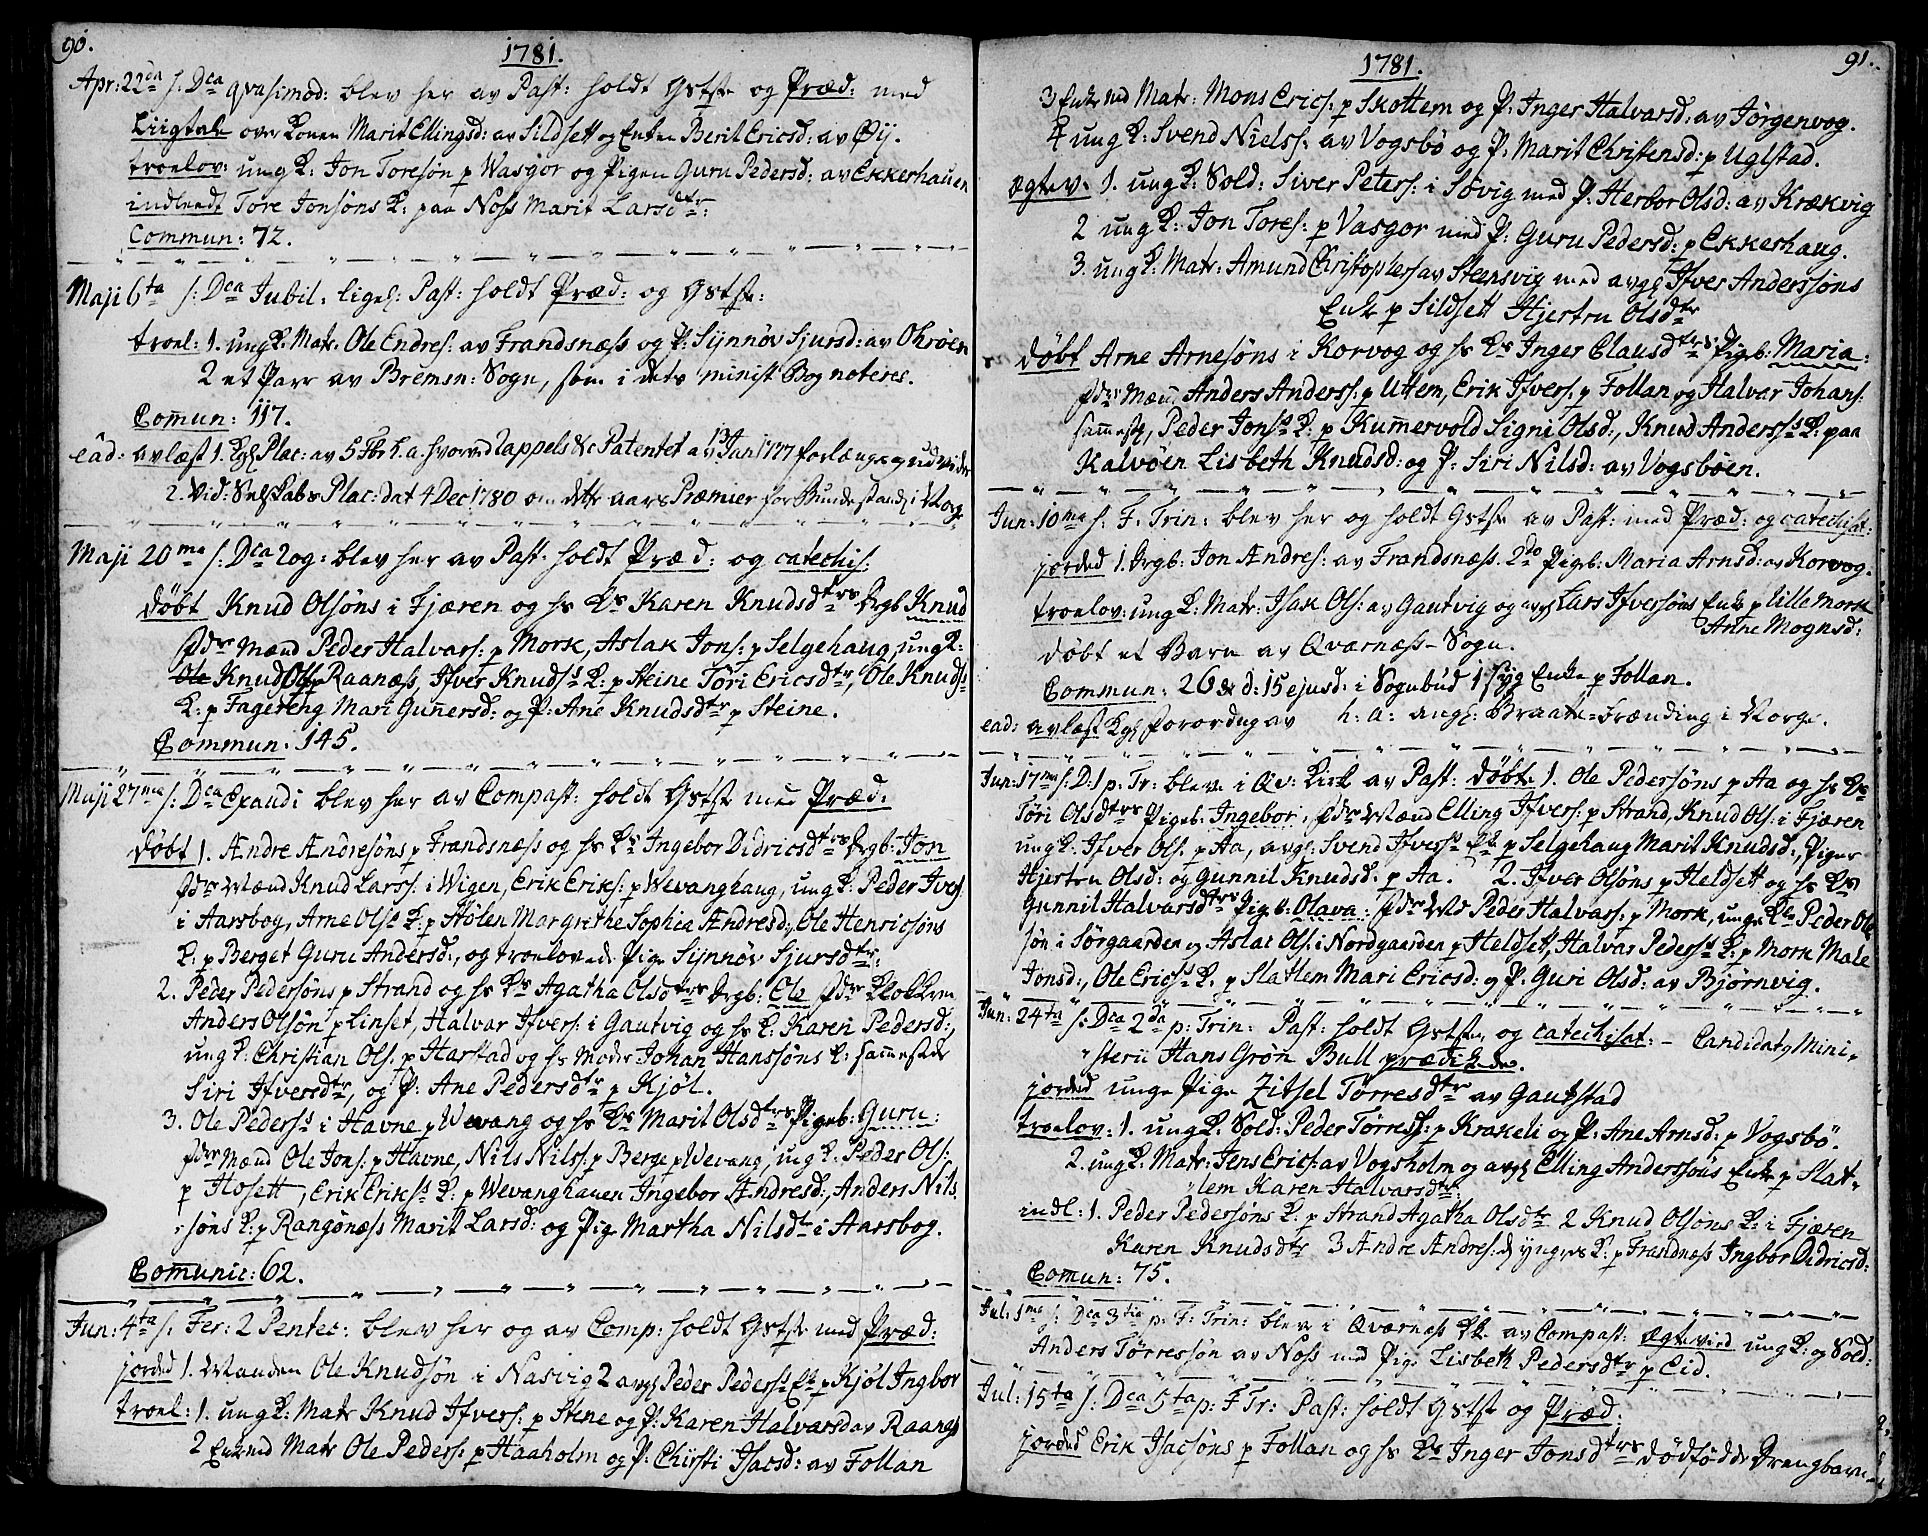 90.
1781.
Apr: 22da s: Dca Qvasimod: blev her av Past: holdt Gstste og Præd: med
Liigtale over Konen Marit Ellingsd: av Sildsett og Enken Berit Ericsd: av Øij.
troelov: ung K: Jon Toresøn p Wasgor og Pigen Guru Pedersd: av Ekkerhauen
indleedt Tore Jonsøns K: paa Noss Marit Larsdtr:
Commun: 72.
Maji 6ta s: Dca Jubil: liges: Past: holdt Præd: og Gstste:
troel: 1. ung K: Matr: Ole Endres: av Frandsnæss og P: Synnøv Sjursd: av Ohrøen
2 et Parr av Bremsn: Sogn, som i dets minist Bog noteres.
Comun: 117.
eâd: avlæst 1. Kgl Plac: av 5 Fbr h. a. hvorved Zappels &c Patentet av 13 Jan 1777 forlænges og udvides
2. Vid: Selskabs Plac: dat 4 Dec 1780 om dette aars Præmier for Bundestand i Norge
Maji 20me s: Dca Rog: blev her av Past: holdt Præd: og catechis:
døbt Knud Olsøns i Fjæren og hs Ks Karen Knudsdtrs Drgb Knud
fdrmænd Peder Halvars: p Mork, Aslak Jons: p Selgehaug, ung K:
Ole Knud Ols p Raanæss, Ifver Knudss K: p Steine Tori Ericsdtr, Ole Knudss
K: p Fagereng Mari Gunnersd: og P: Ane Knudsdtr p Steine.
Commun: 145.
Maji 27me s: Dca Exaudi blev her av Compast: holdt Gstste med Præd:
døbt 1. Andre Andresøns p Frandsnæss og hs Ks Ingebor Didricsdtrs Drgb: Jon
fdrmænd Knud Larss: i Wigen, Erik Eriks: p Wevanghaug, ung K: Peder Ivers
i Aarsbog, Arne Olss K: p Stølen Margrethe Sophia Andresd:, Ole Henricsøns
K: p Berget Guru Andersd:, og troelovede Pige Synnøv Sjursdtr:
2. Peder Pedersøns p Strand og hs Ks Agatha Olsdtrs Drgb: Ole fdr Klokkeren
Anders Olsøn p Linset, Halvar Ifvers: i Gautvig og hs K: Karen Pedersd:,
ung K: Christian Ols: p Harstad og hs Moder Johan Hanssøns K: sammestede
Siri Ifversdtr, og P: Ane Pedersdtr p Kjøl.
3. Ole Pederss i Havne p Wevang og hs Ks Marit Olsdtrs Pigeb: Guru:
fdrmænd Ole Jons: p Havne, Nils Nilss: p Berge p Wevang, ung K: Peder Ols:
p Hosett, Erik Erikss K: p Wevanghauen Ingebor Andresd:, Anders Nils
søns K: p Rangønæss Marit Larsd: og Pige Martha Nilsdtr i Aarsbog.
Comunic: 62.
Jun: 4ta s: Fer: 2 Pentec: blev her og av Comp: holdt Gstste med Præd:
jorded 1. Manden Ole Knudsøn i Nasvig 2 avg Peder Pederss Ek p Kjøl Ingbor
troel: 1. ung K: Matr Knud Ifvers: p Stene og P: Karen Halvarsd av Raangs
2 Enkemd Matr Ole Peders: p Haaholm og P: Chirsti Isacsd: av Follan
91.
1781.
3 Enkemd Matr: Mons Erics: p Skottem og P: Inger Halvarsd: av Jørgenvog.
4 ung K: Svend Nielss: av Vogsbø og P: Marit Christensd: p Uglstad.
ægtev. 1. ung K: Sold: Siver Peters: i Søvig med P: Herbor Olsd: av Krækvig
2 ung K: Jon Tores: p Vasgor med P: Guru Pedersd: p Ekkerhaug.
3. ung K: Matr: Amund Christophers av Steensvig med avg Ifver Anderssøns
Enke p Sildsett Hjertru Olsdtr
døbt Arne Arnesøns i Korvog og hs Ks Inger Clausdtrs Pigb: Maria:
fdrmæn: Anders Anderss: p Uttem, Erik Ifvers: p Follan og Halvar Johans:
samest, Peder Jonss K: p Kumervold Signi Olsd:, Knud Anderss K: paa
Kalvøen Lisbeth Knudsd: og P: Siri Nilsd: av Vogsbøen.
Jun: 10me s: F: Trin: blev her og holdt Gstste av Past: med Præd: og catechisat:
jorded 1. Drgb: Jon Andres: av Frandsnæss. 2do Pigeb: Maria Arnsd: av Korvog.
troelov: ung K: Matr: Isak Ols: av Gautvig og avg Lars Ifversøns Enke p Lille Mork
Anne Mognsd:
døbt et Barn av Qvarnæss-Sogn.
Commun: 26 & d: 15 ejusd: i Sognebud 1 syg Enke p Follan.
ead: avlæst Kgl Forordng av h: a: ang: Braate-Brænding i Norge.
Jun: 17me s: D: 1 p: Tr: blev i Qv: Kirk av Past: døbt 1. Ole Pedersøns p Aa og hs Ks
Tøri Olsdtrs Pigeb. Ingebor, fdrmænd Elling Ifvers: p Strand, Knud Ols: i Fjæren
ung K: Ifver Ols: p Aa, avg: Svend Ifverss Ek p Selgehaug Marit Knudsd:, Piger
Hjertru Olsd: og Gunnil Knudsd: p Aa. 2. Ifver Olsøns p Heldsett og hs Ks
Gunnil Halvarsdtrs Pigb. Olava: fdrmd Peder Halvars: p Mork, unge Kle Peder Ole
søn i Sørgaarden og Aslac Ols: i Nordgaarden p Heldsett, Halvar Pederss K: p Mork Male
Jonsd:, Ole Ericss K. p Slatlem Mari Ericsd: og P: Guri Olsd: av Bjørnvig.
Jun: 24ta s: Dca 2da p: Trin: Past: holdt Gstste, og catechisat: - Candidat, Mini-
sterii Hans Grøn Bull prædikede.
jorded unge Pige Zitsel Tørresdtr av Gautstad
troelov: 1. ung K: Sold: Peder Tørress: p Krakeli og P: Ane Arnsd: p Vogsbø.
2. ung K: Matr: Jens Erics: av Vogsholm og avg Elling Anderssøns Enke p Slat-
lem Karen Halvarsdtr:
indl: 1. Peder Pedersøns K: p Strand Agatha Olsdtr 2 Knud Olsøns K: i Fjæren
Karen Knudsdtr 3 Andre Andres: d yngres K: p Frandnæss Ingbor Didricsd:
Comun: 75.
Jul: 1me s: Dca 3tia p: F: Trin: blev i Qværnæss Kk av Compast: ægtevied ung K: og Sold:
Anders Tørressøn av Noss med Pige Lisbeth Pedersdtr p Eid.
Jul: 15ta s: Dca 5ta p: F Tr: Past: holdt Gstste og Præd:
jorded Erik Isacsøns p Follan og hs Ks Inger Jonsdtrs dødfødde Drengbarn